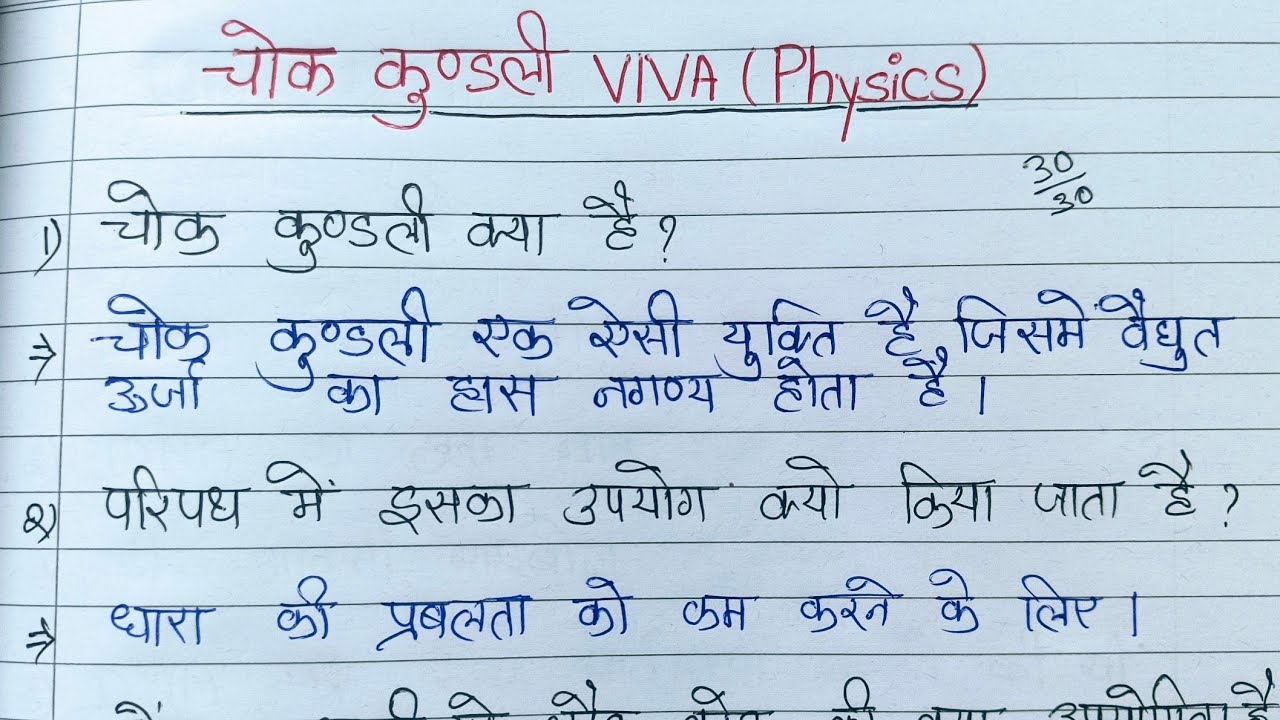 चोक कुण्डली VIVA (Physics)
30/30
1) चोक कुण्डली क्या है?
⇒ चोक कुण्डली एक ऐसी युक्ति है जिसमें वैद्युत
ऊर्जा का ह्रास नगण्य होता है।
2) परिपथ में इसका उपयोग क्यो किया जाता है?
⇒ धारा की प्रबलता को कम करने के लिए।